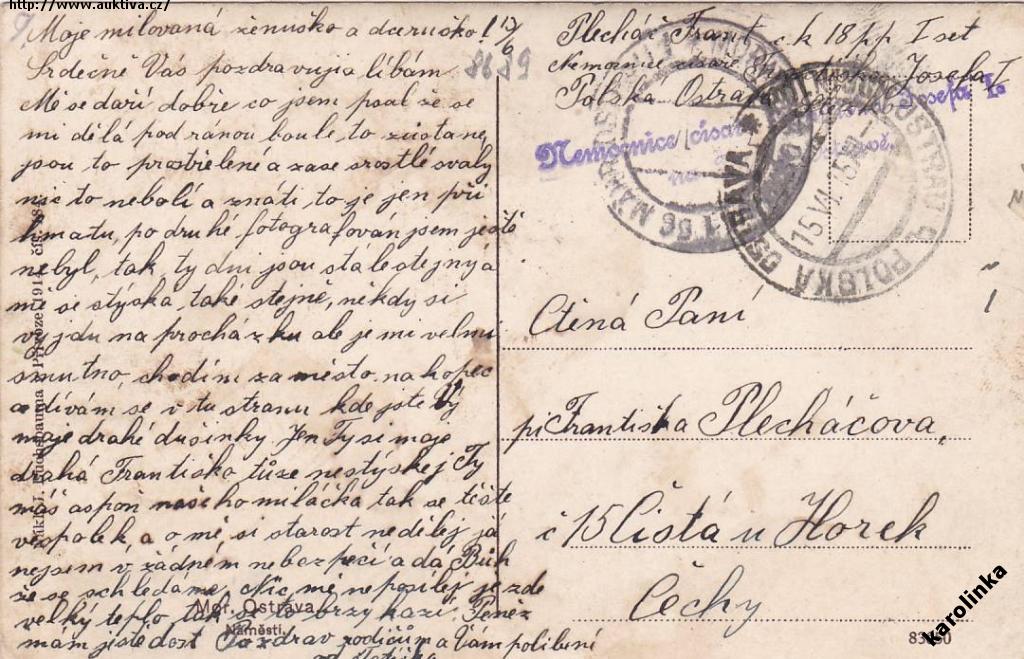 http://www.auktiva.cz/
Moje milovaná ženuško a dceruško! 13/6
Srdečně Vás pozdravuji a líbám
Mě se daří dobře co jsem psal že se
mi dělá pod ránou boule to zůstane
jsou to prostřelené a zase srostlé svaly
nic to nebolí a znáti to je jen při
hmatu, po druhé fotografován jsem ještě
nebyl, tak ty dni jsou stale stejny a
mě se stýska také stejně, někdy si
vyjdu na procházku ale je mi velmi
smutno, chodím za město na kopec
a dívám se v tu stranu kde jste Vý
moje drahé dušinky Jen Ty si moje
drahá Františko tůze nestýskej Ty
máš aspoň našeho miláčka tak se těšte
vespolek, a o mě si starost nedělej já
nejsem v žádném nebezpečí a dá Bůh
že se schledáme. Nic mě neposílej je zde
velký teplo tak se to brzy kazí. Peněz
mám ještě dost Pozdrav rodičům a Vám políbení
8689
Plecháč Frant c. k 18 pp I set
Nemocnice císaře Josefa I
Polska Ostrava
Nemocnice císaře Josefa I.
MÄHR. OSTRAU
POLNISCH OSTRAU
POLSKA OSTRAVA
15.VI.
Ctěná Paní
pí Františka Plecháčova,
č 15 Čistá u Horek
Čechy
Mor. Ostrava.
Náměstí.
1914
83160
karolinka